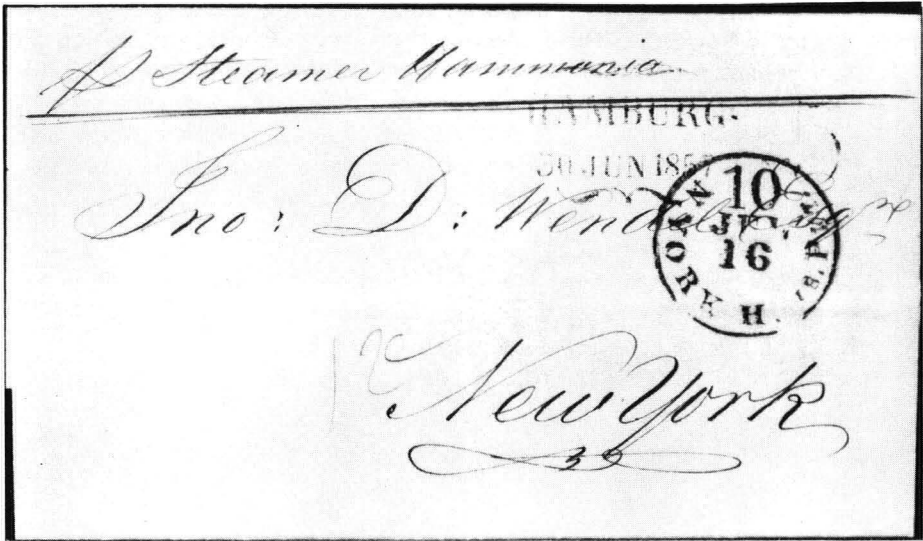 Steamer Hammonia
HAMBURG.
30 JUN 185
Jno: D: Wendell Esqre
10
JUL.
16
New York